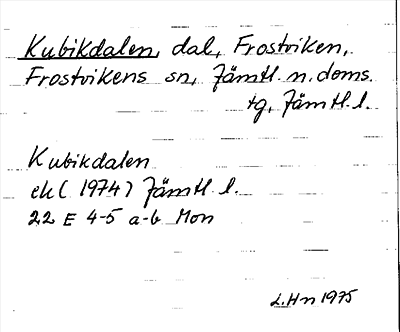 Kubikdalen, dal, Frostviken,
Frostvikens sn, Jämtl. n. doms.
tg, Jämtl. l.
Kubikdalen
ek (1974) Jämtl l.
22 E 4-5 a-b Mon
L.Hn 1975